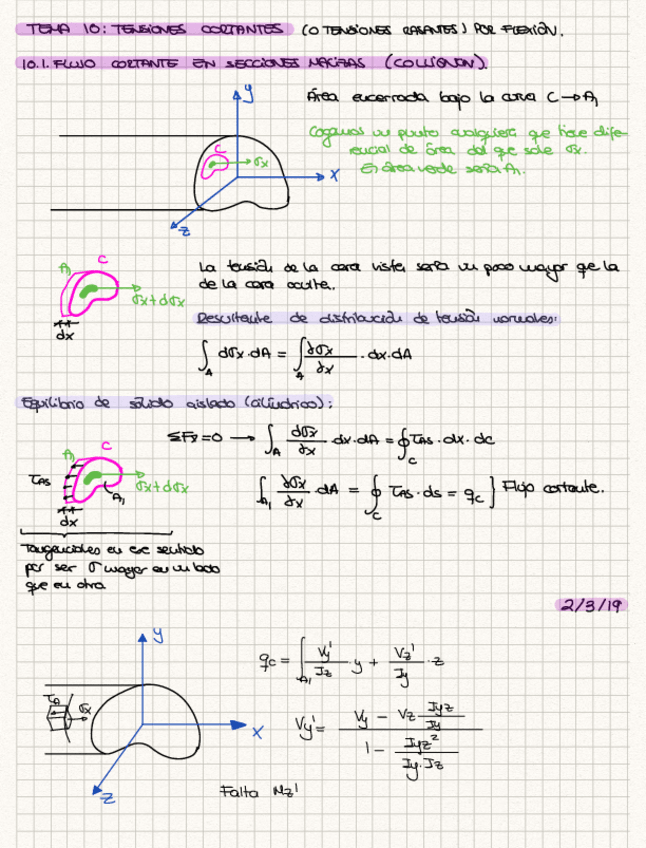 TEMA 10: TENSIONES CORTANTES (O TENSIONES RASANTES) POR FLEXIÓN.
10.1. FLUJO CORTANTE EN SECCIONES MACIZAS (COLLIGNON).
y
Área encerrada bajo la curva C → A₁
Cogamos un punto cualquiera que tiene dife-
rencial de área del que sale σx.
El área verde sería A₁.
C
σx
x
z
A₁
C
σx+dσx
dx
La tensión de la cara vista, sería un poco mayor que la
de la cara oculta.
Resultante de distribución de tensión normales:
∫_A dσx·dA = ∫_A dσx/dx · dx·dA
Equilibrio de sólido aislado (cilíndrico):
ΣFx=0 → ∫_A dσx/dx · dx·dA = ∮_C τAS · dx · dc
A₁
C
τAS
σx+dσx
A₁
dx
∫_A₁ dσx/dx · dA = ∮_C τAS · ds = qc } Flujo cortante.
Tangenciales en ese sentido
por ser σ mayor en un lado
que en otro
2/3/19
y
qc = ∫_A₁ Vy'/Iz · y + Vz'/Iy · z
σx
x
z
Vy' = (Vy - Vz · Iyz/Iy) / (1 - Iyz²/(Iy·Iz))
Falta Mz'